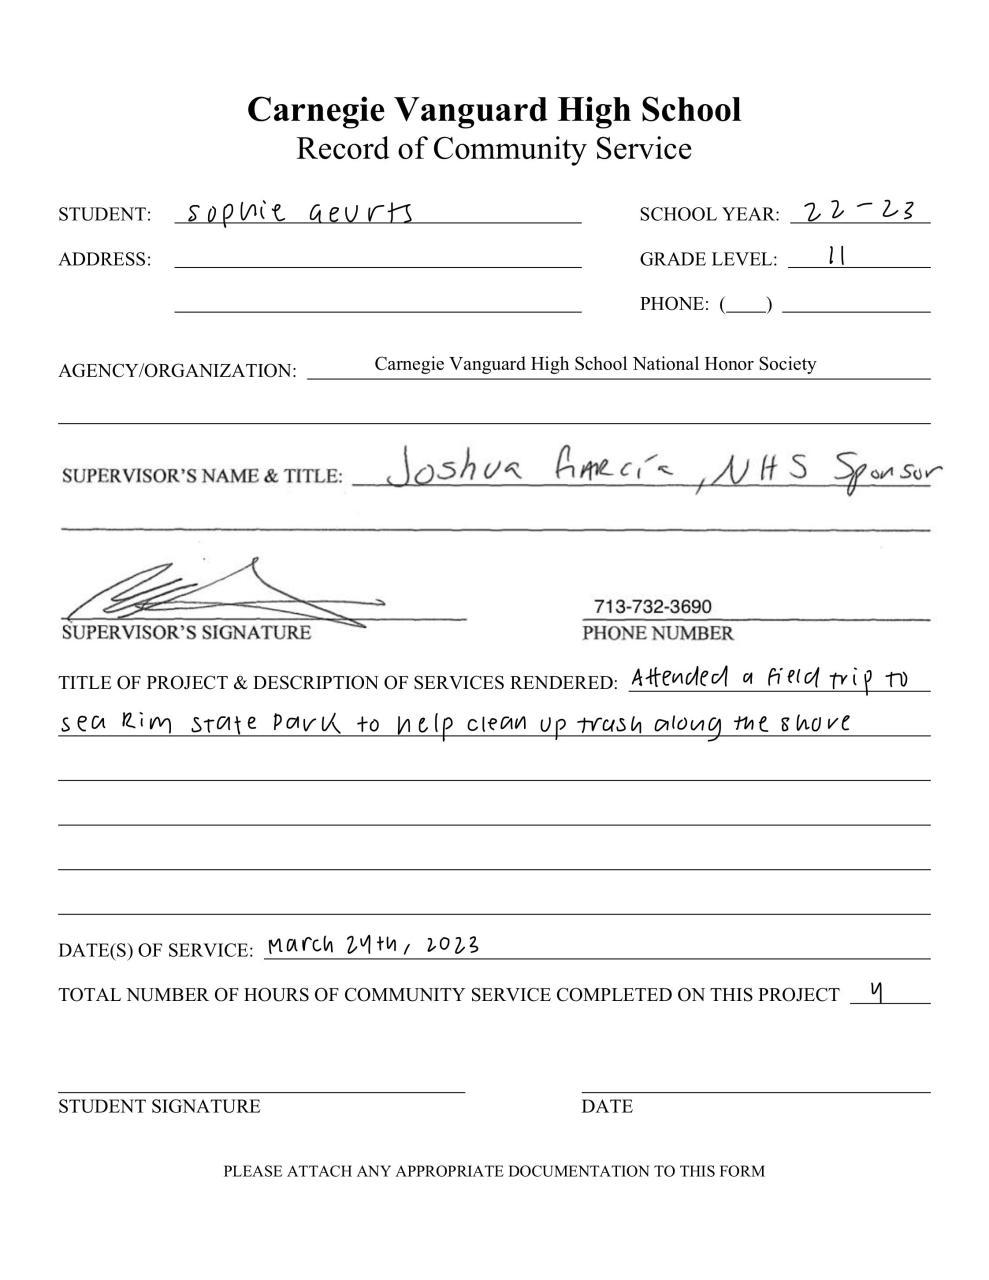 Carnegie Vanguard High School
Record of Community Service
STUDENT: Sophie Geurts SCHOOL YEAR: 22-23
ADDRESS: GRADE LEVEL: 11
PHONE: (____)
AGENCY/ORGANIZATION: Carnegie Vanguard High School National Honor Society
SUPERVISOR'S NAME & TITLE: Joshua Garcia, NHS Sponsor
713-732-3690
SUPERVISOR'S SIGNATURE PHONE NUMBER
TITLE OF PROJECT & DESCRIPTION OF SERVICES RENDERED: Attended a field trip to
Sea Rim State Park to help clean up trash along the shore
DATE(S) OF SERVICE: March 24th, 2023
TOTAL NUMBER OF HOURS OF COMMUNITY SERVICE COMPLETED ON THIS PROJECT 4
STUDENT SIGNATURE DATE
PLEASE ATTACH ANY APPROPRIATE DOCUMENTATION TO THIS FORM